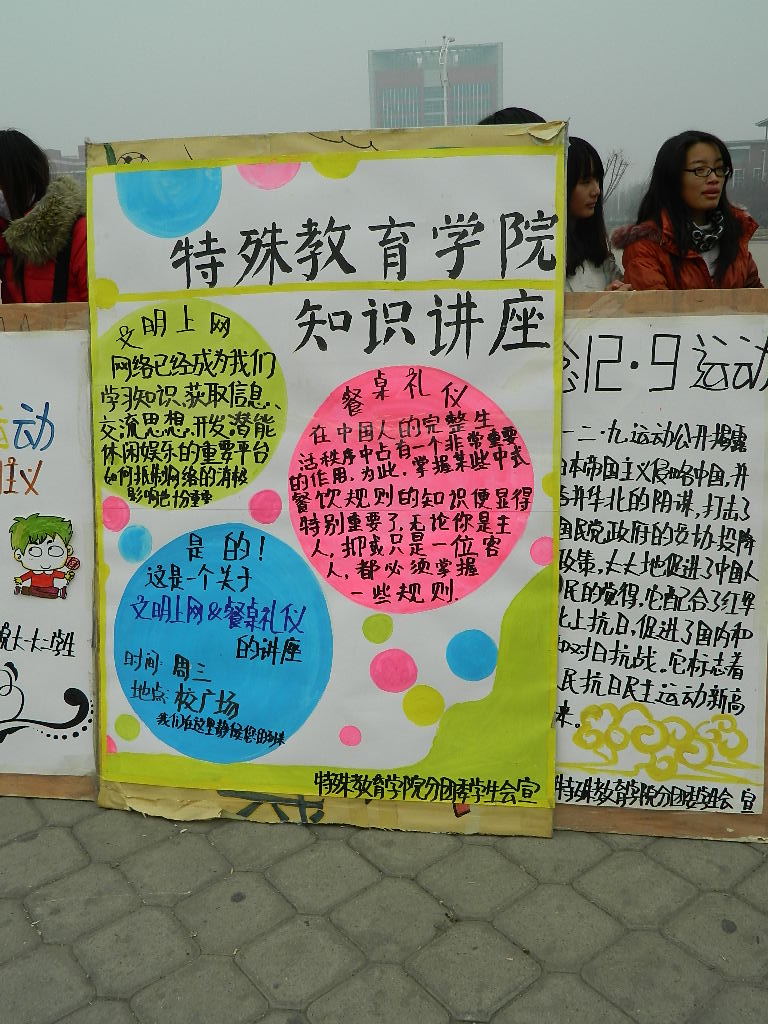 特殊教育学院
知识讲座
文明上网
网络已经成为我们
学习知识、获取信息、
交流思想、开发潜能
休闲娱乐的重要平台
如何抵制网络的消极
影响
重要
餐桌礼仪
在中国人的完整生
活秩序中占有一个非常重要
的作用,为此,掌握某些中式
餐饮规则的知识便显得
特别重要了,无论你是主
人,抑或只是一位客
人,都必须掌握
一些规则.
是的!
这是一个关于
文明上网&餐桌礼仪
的讲座
时间:周三
地点:校广场
我们在这里静候您的到来
特殊教育学院分团委学生会宣
动
义
12·9运动
一二·九运动公开揭露
本帝国主义侵略中国,并
吞并华北的阴谋,打击了
国民党政府的妥协投降
政策,大大地促进了中国人
民的觉得,它配合了红军
北上抗日,促进了国内和
和对日抗战.它标志着
民抗日民主运动新高
来。
特殊教育学院分团委学生会 宣